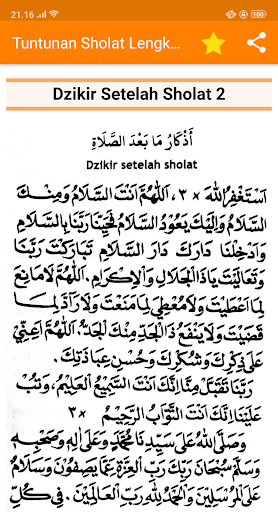 21.16
Tuntunan Sholat Lengk...
Dzikir Setelah Sholat 2
أَذْكَارُ مَا بَعْدَ الصَّلَاةِ
Dzikir setelah sholat
اَسْتَغْفِرُ اللهَ × ٣، اَللّٰهُمَّ اَنْتَ السَّلَامُ وَمِنْكَ
السَّلَامُ وَاِلَيْكَ يَعُوْدُ السَّلَامُ فَحَيِّنَا رَبَّنَا بِالسَّلَامِ
وَاَدْخِلْنَا دَارَكَ دَارَ السَّلَامِ تَبَارَكْتَ رَبَّنَا
وَتَعَالَيْتَ يَاذَا الْجَلَالِ وَالْاِكْرَامِ. اَللّٰهُمَّ لَا مَانِعَ
لِمَا اَعْطَيْتَ وَلَا مُعْطِيَ لِمَا مَنَعْتَ وَلَا رَآدَّ لِمَا
قَضَيْتَ وَلَا يَنْفَعُ ذَا الْجَدِّ مِنْكَ الْجَدُّ، اَللّٰهُمَّ اَعِنِّيْ
عَلَى ذِكْرِكَ وَشُكْرِكَ وَحُسْنِ عِبَادَتِكَ.
رَبَّنَا تَقَبَّلْ مِنَّا اِنَّكَ اَنْتَ السَّمِيْعُ الْعَلِيْمُ، وَتُبْ
عَلَيْنَا اِنَّكَ اَنْتَ التَّوَّابُ الرَّحِيْمُ × ٣
وَصَلَّى اللهُ عَلَى سَيِّدِنَا مُحَمَّدٍ وَعَلَى اٰلِهِ وَصَحْبِهِ
وَسَلَّمَ سُبْحَانَ رَبِّكَ رَبِّ الْعِزَّةِ عَمَّا يَصِفُوْنَ وَسَلَامٌ
عَلَى الْمُرْسَلِيْنَ وَالْحَمْدُ لِلّٰهِ رَبِّ الْعَالَمِيْنَ. فِيْ كُلِّ